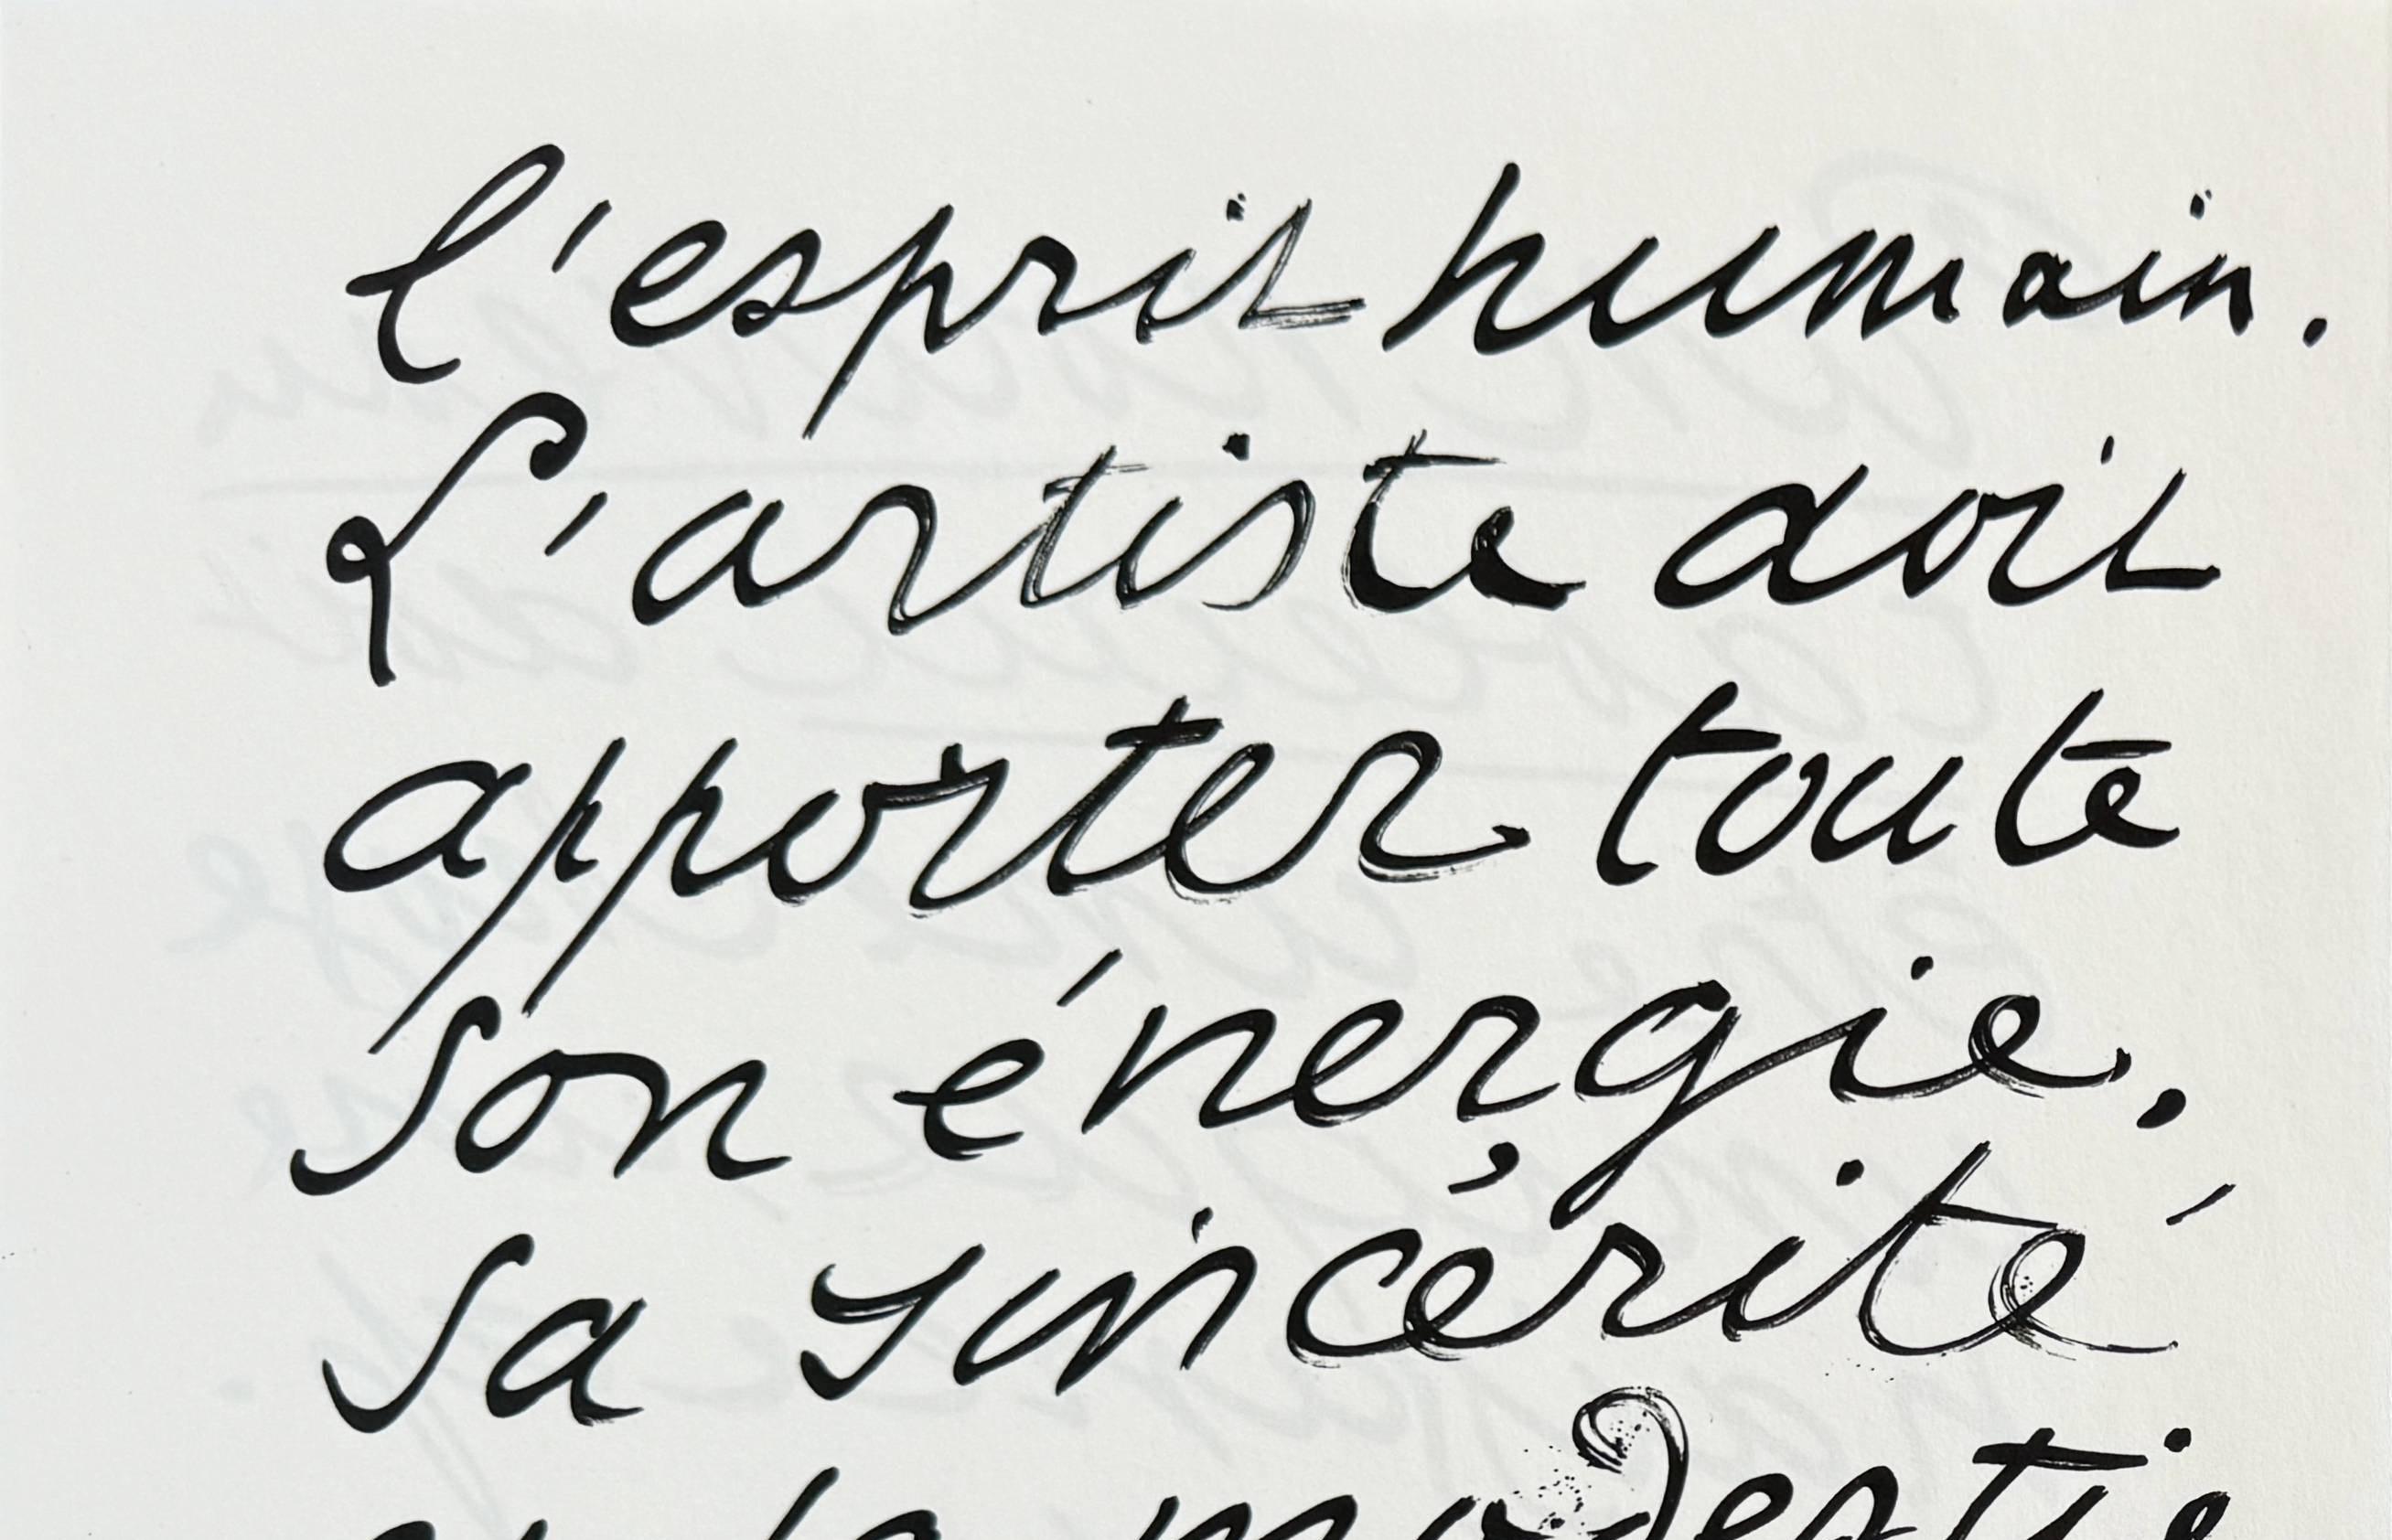 l'esprit humain.
L'artiste doit
apporter toute
son énergie,
sa sincérité
et la modestie